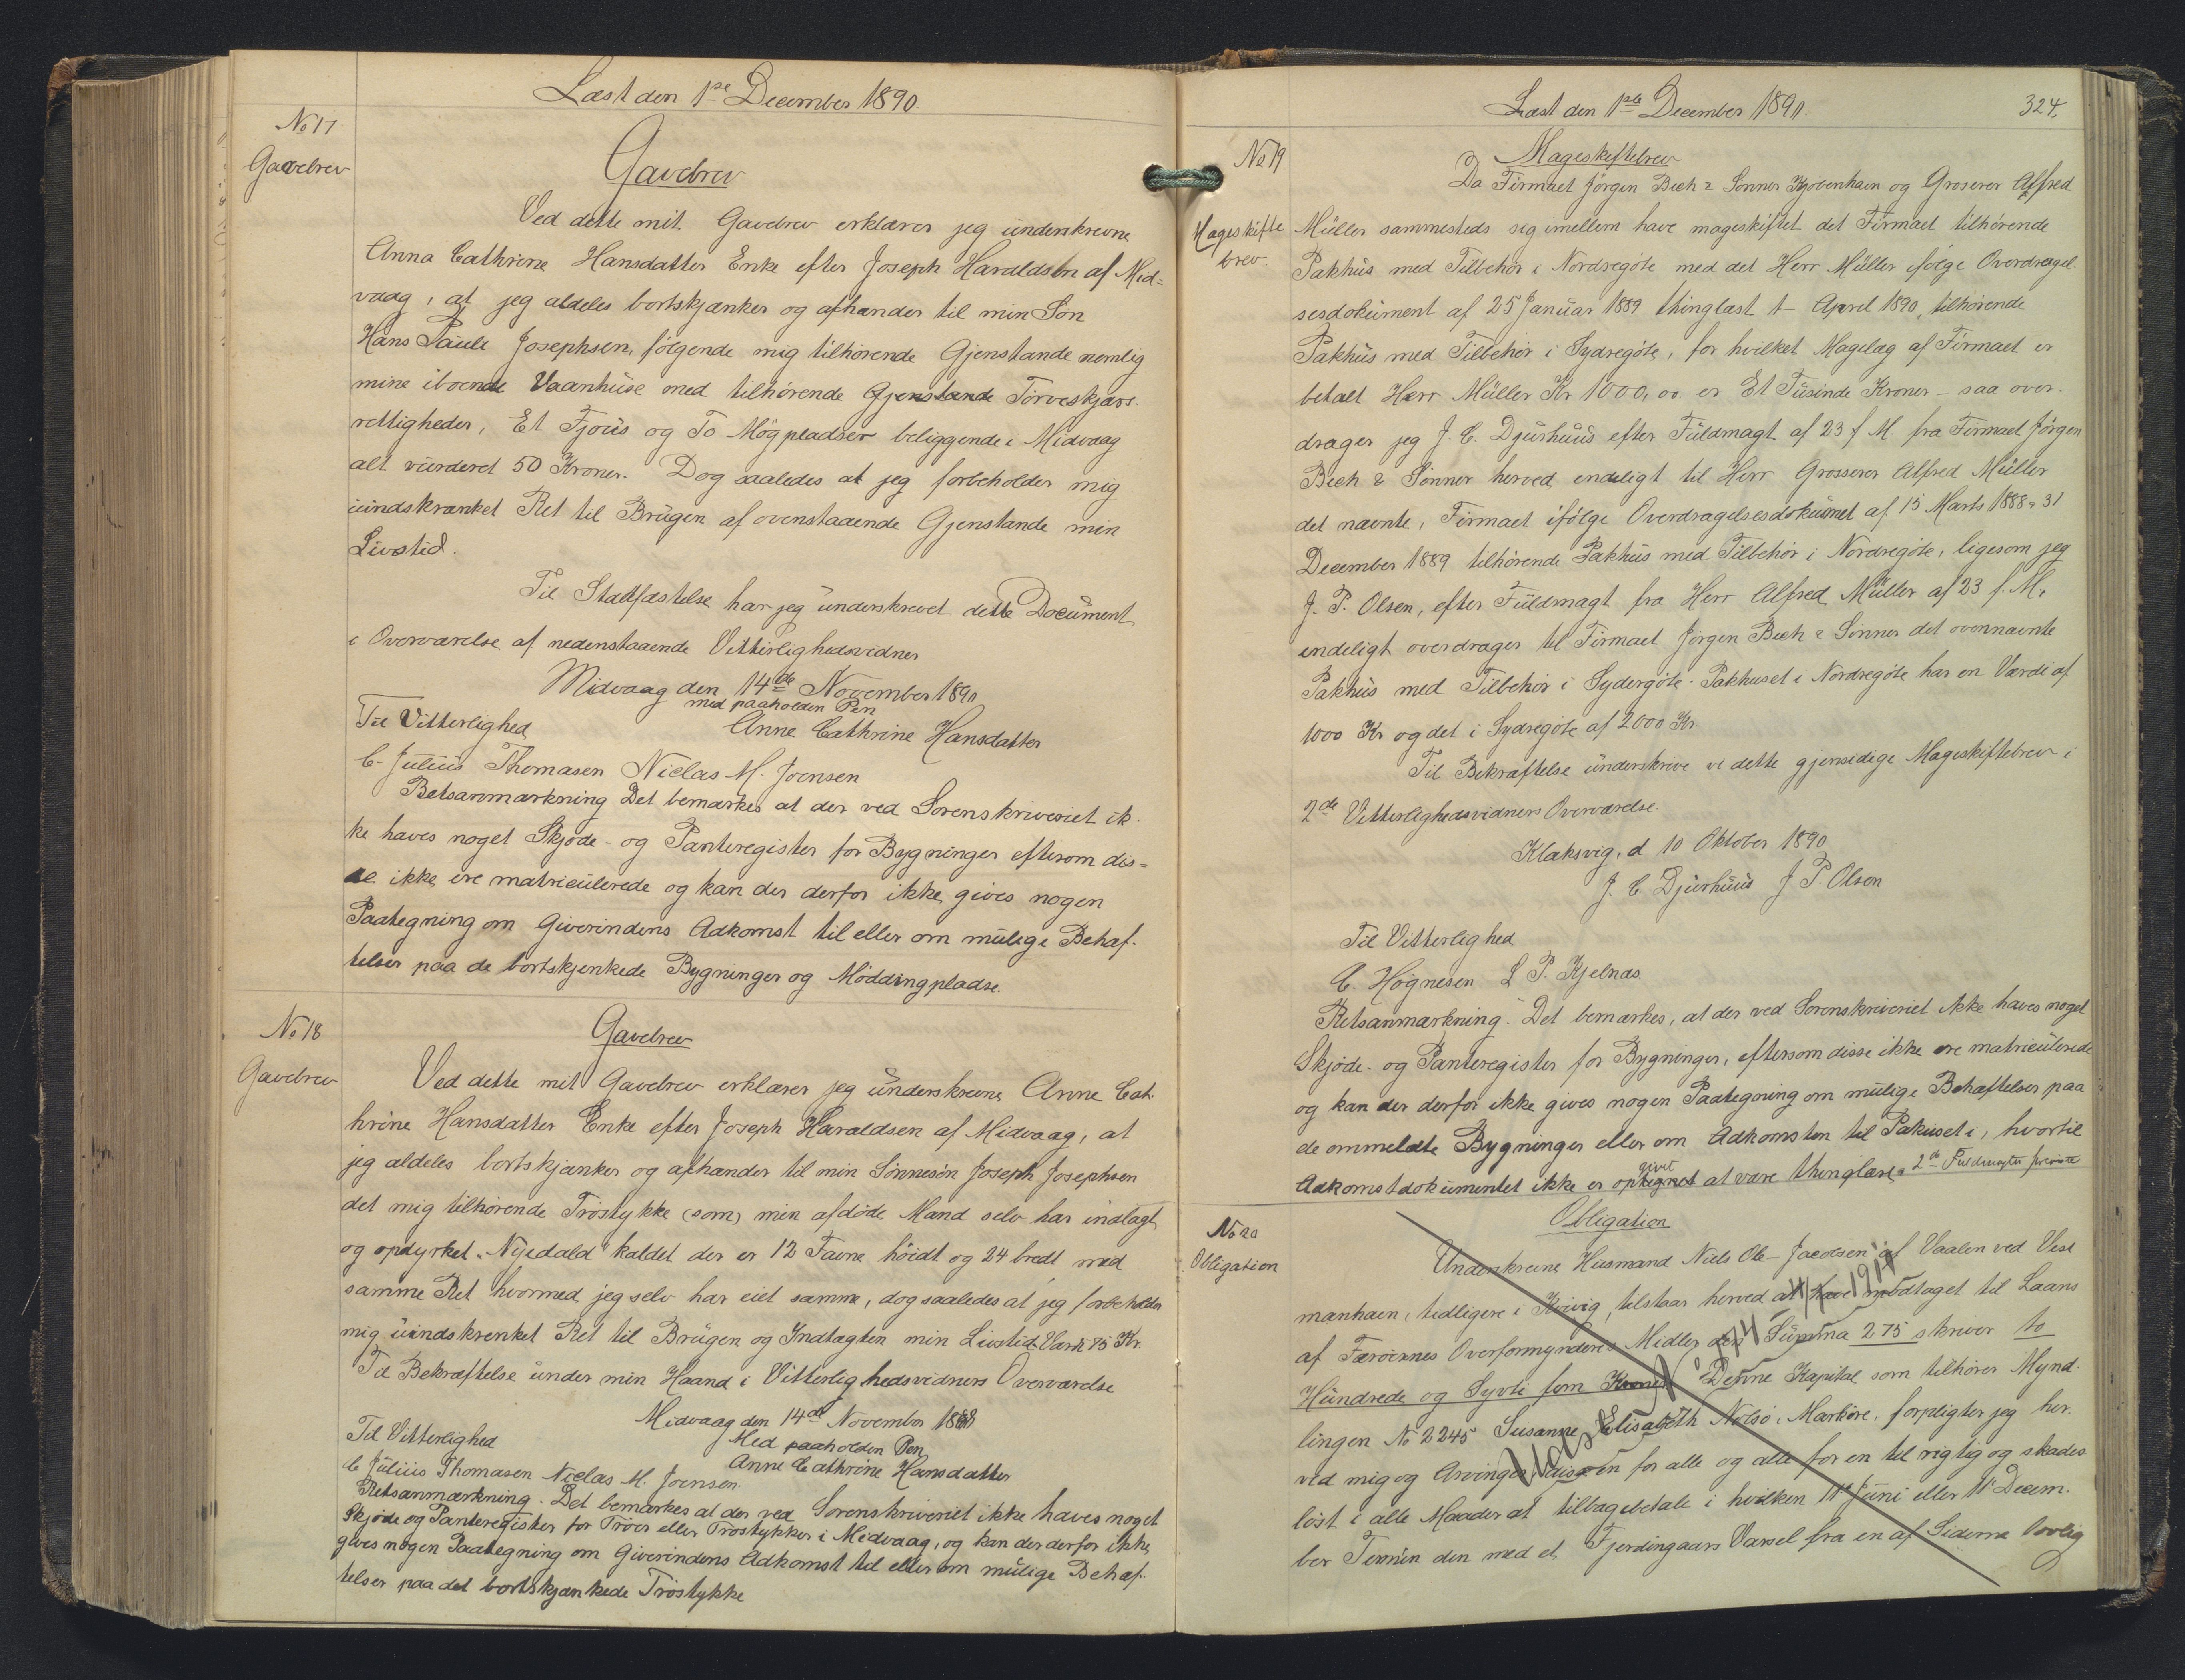 Læst den 1ste December 1890.
No 17
Gavebrev
Gavebrev
Ved dette mit Gavebrev erklærer jeg underskrevne
Anna Cathrine Hansdatter Enke efter Joseph Haraldsen af Mid=
vaag, at jeg aldeles bortskjænker og afhænder til min Søn
Hans Paule Josephsen, følgende mig tilhørende Gjenstande nemlig
mine iboende Vaanhuse med tilhørende Gjenstande Tørveskjærs-
rettigheder, Et Fjøus og To Møgpladser beliggende i Midvaag
alt vurderet 50 Kroner. Dog saaledes at jeg forbeholder mig
uindskrænket Ret til Brugen af ovenstaaende Gjenstande min
Livstid.
Til Stadfæstelse har jeg underskrevet dette Document
i Overværelse af nedenstaaende Vitterlighedsvidner
Midvaag den 14de November 1890
med paaholden Pen
Til Vitterlighed Anne Cathrine Hansdatter
C. Julius Thomasen Niclas M. Joensen
Retsanmærkning Det bemærkes at der ved Sorenskriveriet ik-
ke haves noget Skjøde- og Panteregister for Bygninger eftersom dis=
se ikke ere matriculerede og kan der derfor ikke gives nogen
Paategning om Giverindens Adkomst til eller om mulige Behæf-
telser paa de bortskjenkede Bygninger og Møddingpladse.
No 18
Gavebrev
Gavebrev
Ved dette mit Gavebrev erklærer jeg underskrevne Anne Cat-
hrine Hansdatter Enke efter Joseph Haraldsen af Midvaag, at
jeg aldeles bortskjænker og afhænder til min Sønnesøn Joseph Josephsen
det mig tilhørende Trøstykke (som) min afdøde Mand selv har indlagt
og opdyrket "Nyedald" kaldet der er 12 Favne høidt og 24 bredt med
samme Ret hvormed jeg selv har eiet samme, dog saaledes at jeg forbeholder
mig uindskrenket Ret til Brugen og Indtægten min Livstid Værdi 75 Kr.
Til Bekræftelse under min Haand i Vitterlighedsvidners Overværelse
Midvaag den 14de November
Til Vitterlighed Med paaholden Pen
Anne Cathrine Hansdatter
C Julius Thomasen Niclas M. Joensen.
Retsanmærkning. Det bemærkes at der ved Sorenskriveriet ikke haves noget
Skjøde og Panteregister for Trøer eller Trøstykker i Midvaag, og kan der derfor ikke
gives nogen Paategning om Giverindens Adkomst til eller om mulige Behæf-
telser paa det bortskjænkede Trøstykke
Læst den 1ste December 1890.
324.
No 19
Mageskifte
brev.
Mageskiftebrev
Da Firmaet Jørgen Bech & Sønner Kjøbenhavn og Groserer Alfred
Müller sammesteds sig imellem have mageskiftet det Firmaet tilhørende
Pakhus med Tilbehør i Nordregøte med det Herr Müller ifølge Overdragel-
sesdokument af 25 Januar 1889 thinglæst 1 – April 1890, tilhørende
Pakhus med Tilbehør i Sydregøte, for hvilket Magelag af Firmaet er
betalt Herr Müller Kr 1000,00. er Et Tusinde Kroner – saa over-
drager jeg J. C. Djurhuus efter Fuldmagt af 23 f. M. fra Firmaet Jørgen
Bech & Sønner herved endeligt til Herr Grosserer Alfred Müller
det nævnte, Firmaet ifølge Overdragelsesdokumet af 15 Marts 1888 & 31
December 1889 tilhørende Pakhus med Tilbehør i Nordregøte, ligesom jeg
J. P. Olsen, efter Fuldmagt fra Herr Alfred Müller af 23 f. M.
endeligt overdrager til Firmaet Jørgen Bech & Sønner det ovennævnte
Pakhus med Tilbehør i Sydergøte. Pakhuset i Nordregøte har en Værdi af
1000 Kr og det i Sydregøte af 2000 Kr.
Til Bekræftelse underskrive vi dette gjensidige Mageskiftebrev i
2de Vitterlighedsvidners Overværelse.
Klaksvig, d 10 Oktober 1890
J. C. Djurhuus J P. Olsen
Til Vitterlighed
C. Høgnesen S P. Kjelnæs.
Retsanmærkning. Det bemærkes, at der ved Sorenskriveriet ikke haves noget
Skjøde- og Panteregister for Bygninger, eftersom disse ikke ere matriculerede
og kan der derfor ikke gives nogen Paategning om mulige Behæftelser paa
de ommeldte Bygninger eller om Adkomsten til Pakuset i, hvortil
Adkomstdokumentet ikke er opgivet at være thinglæst. 2de Fuldmagter
No 20
Obligation
Obligation
Underskrevne Husmand Niels Ole Jacobsen af Vaalen ved Vest
manhavn, tidligere i Kvivig, tilstaar herved at have modtaget til Laans
af Færøernes Overformynderis Midler den Summa 275 skriver to
Hundrede og Syvti fem Kroner. Denne Kapital som tilhører Mynd-
lingen No 2245 Susanne Elisabeth Nolsø, Markøre, forpligter jeg her-
ved mig og Arvinger, en for alle og alle for en til rigtig og skades
løst i alle Maader at tilbagebetale i hvilken 11 Juni eller 11 Decem-
ber Termin den med et Fjerdingaars Varsel fra en af Siderne lovlig